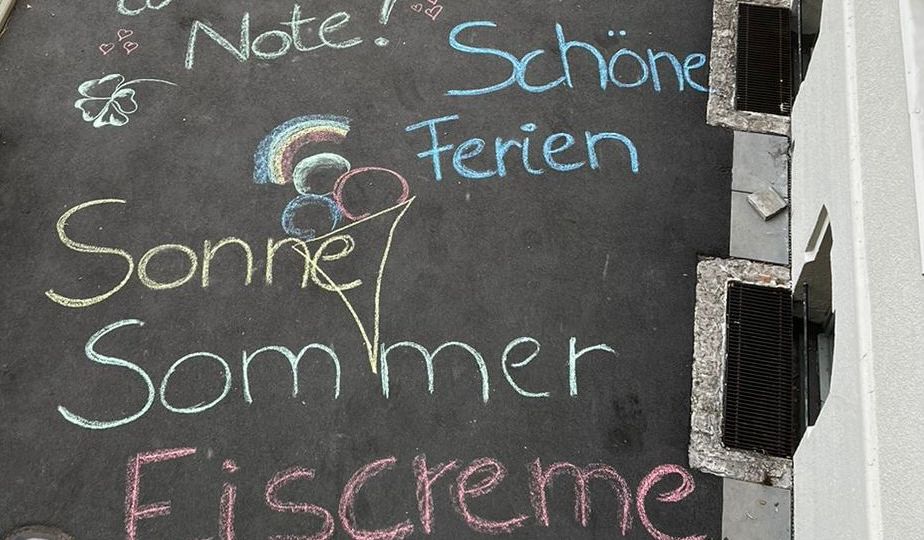 Note!
Schöne
Ferien
Sonne
Sommer
Eiscreme